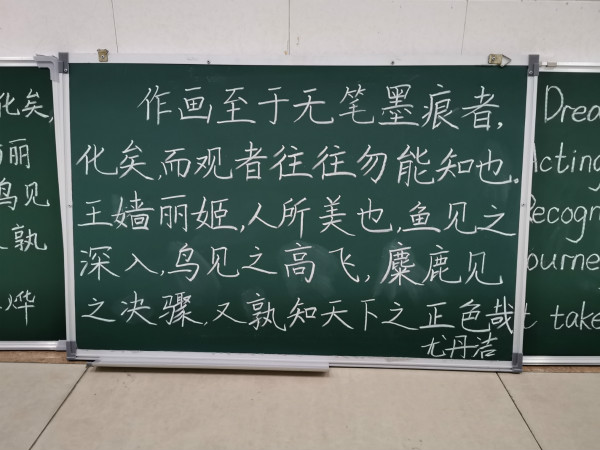 化矣,
丽
鸟见
孰
烨
作画至于无笔墨痕者,
化矣,而观者往往勿能知也.
王嫱丽姬,人所美也,鱼见之
深入,鸟见之高飞,麋鹿见
之决骤,又孰知天下之正色哉
尤丹洁
Drea
Acting
Recogn
ourne
t take